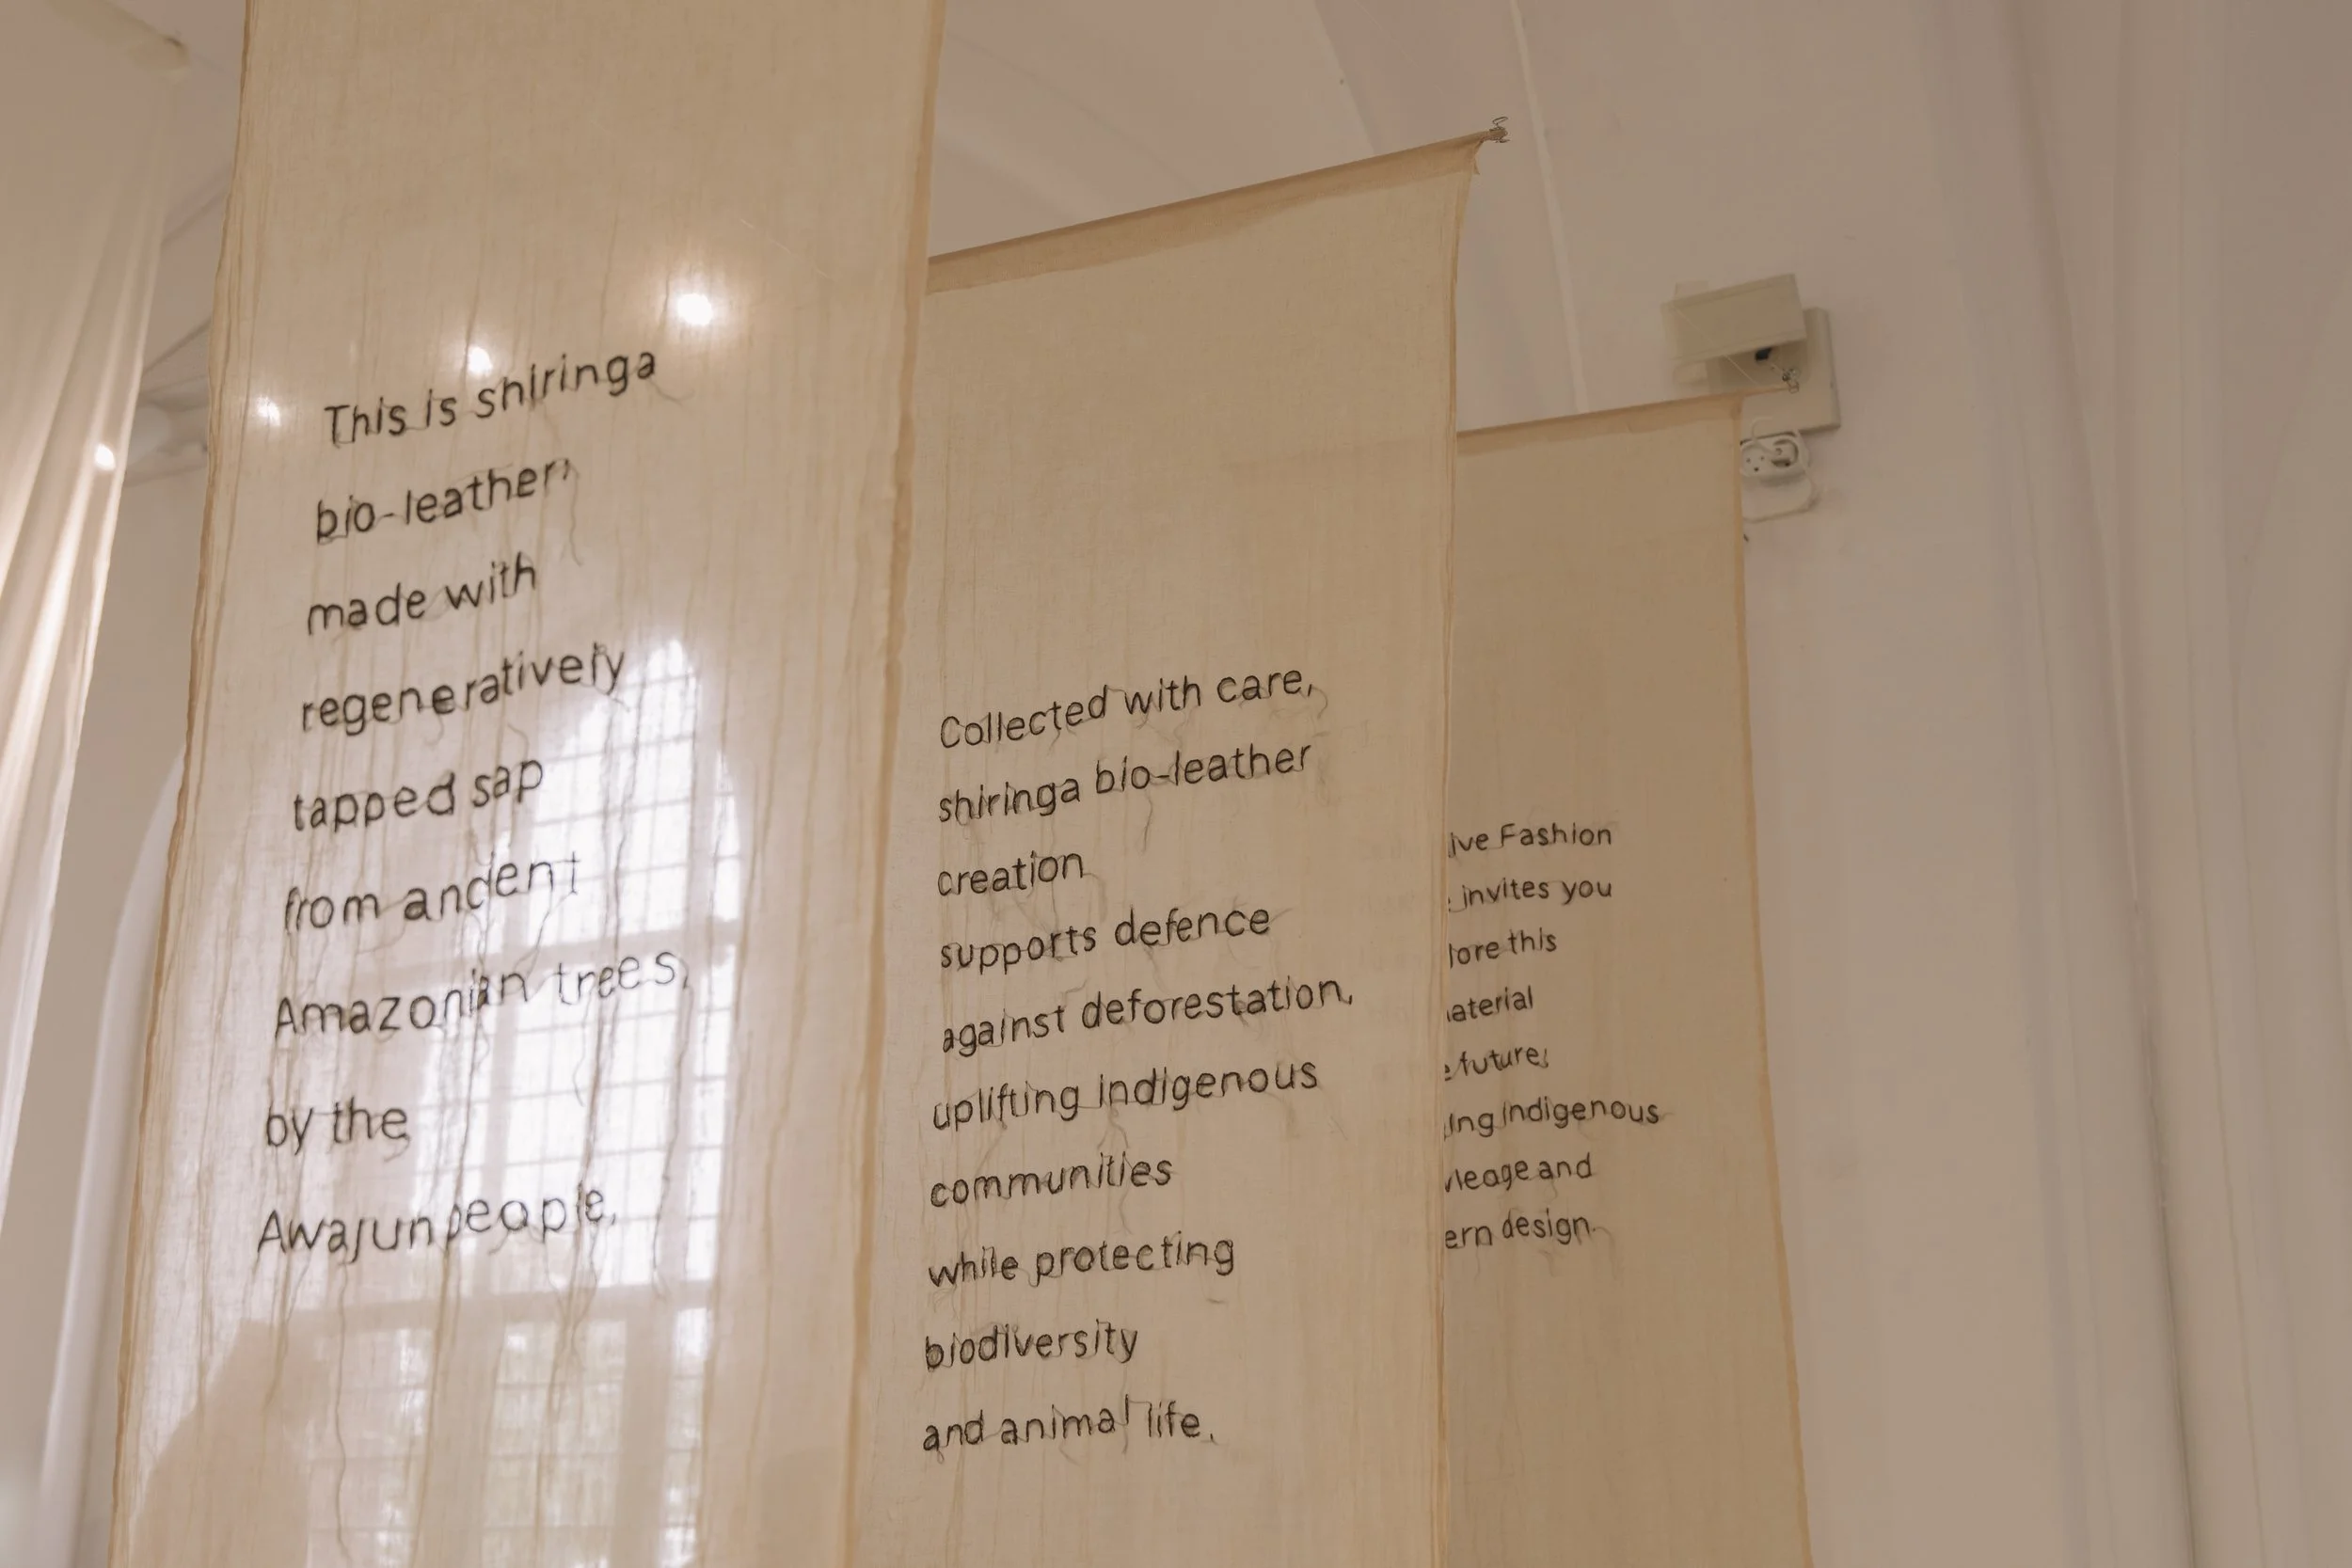 This is shiringa
bio-leather,
made with
regeneratively
tapped sap
from ancient
Amazonian trees,
by the
Awajun people.
Collected with care,
shiringa bio-leather
creation
supports defence
against deforestation,
uplifting indigenous
communities
while protecting
biodiversity
and animal life.
Fashion
invites you
this
future,
indigenous
and
design.